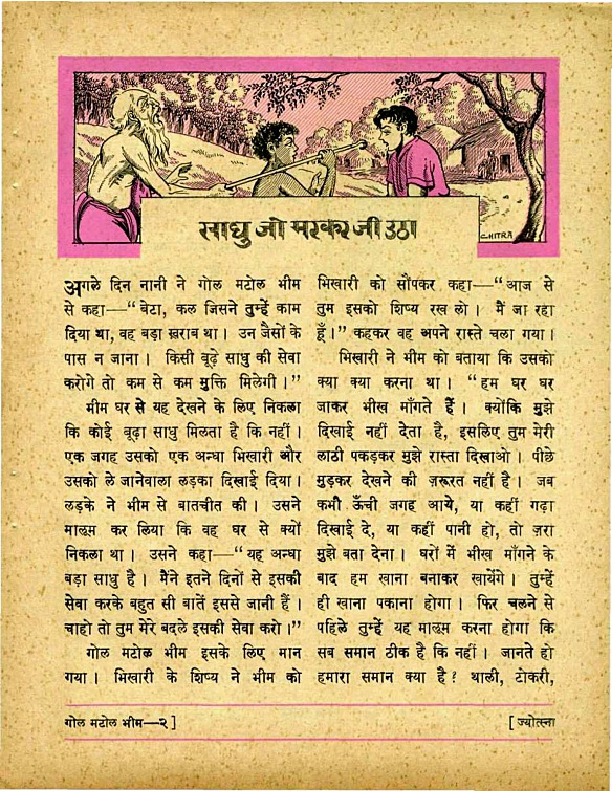 साधु जो मरकर जी उठा
CHITRA
अगले दिन नानी ने गोल मटोल भीम
से कहा—“बेटा, कल जिसने तुम्हें काम
दिया था, वह बड़ा ख़राब था। उन जैसों के
पास न जाना। किसी बूढ़े साधु की सेवा
करोगे तो कम से कम मुक्ति मिलेगी।”
भीम घर से यह देखने के लिए निकला
कि कोई बूढ़ा साधु मिलता है कि नहीं।
एक जगह उसको एक अन्धा भिखारी और
उसको ले जानेवाला लड़का दिखाई दिया।
लड़के ने भीम से बातचीत की। उसने
मालूम कर लिया कि वह घर से क्यों
निकला था। उसने कहा—“यह अन्धा
बड़ा साधु है। मैंने इतने दिनों से इसकी
सेवा करके बहुत सी बातें इससे जानी हैं।
चाहो तो तुम मेरे बदले इसकी सेवा करो।”
गोल मटोल भीम इसके लिए मान
गया। भिखारी के शिष्य ने भीम को
भिखारी को सौंपकर कहा—“आज से
तुम इसको शिष्य रख लो। मैं जा रहा
हूँ।” कहकर वह अपने रास्ते चला गया।
भिखारी ने भीम को बताया कि उसको
क्या क्या करना था। “हम घर घर
जाकर भीख माँगते हैं। क्योंकि मुझे
दिखाई नहीं देता है, इसलिए तुम मेरी
लाठी पकड़कर मुझे रास्ता दिखाओ। पीछे
मुड़कर देखने की ज़रूरत नहीं है। जब
कभी ऊँची जगह आये, या कहीं गढ़ा
दिखाई दे, या कहीं पानी हो, तो ज़रा
मुझे बता देना। घरों में भीख माँगने के
बाद हम खाना बनाकर खायेंगे। तुम्हें
ही खाना पकाना होगा। फिर चलने से
पहिले तुम्हें यह मालूम करना होगा कि
सब समान ठीक है कि नहीं। जानते हो
हमारा समान क्या है? थाली, टोकरी,
गोल मटोल भीम—२]
[ज्योत्स्ना